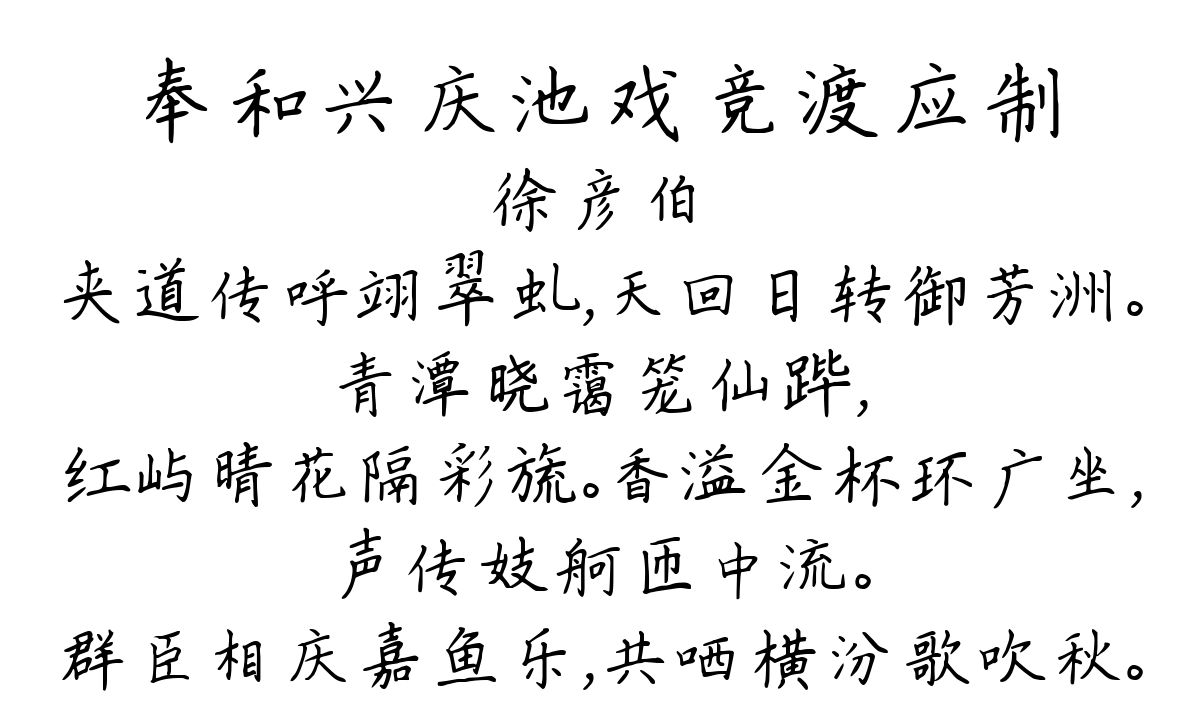 奉和兴庆池戏竞渡应制
徐彦伯
夹道传呼翊翠虬,天回日转御芳洲。
青潭晓霭笼仙跸,
红屿晴花隔彩旒。香溢金杯环广坐,
声传妓舸匝中流。
群臣相庆嘉鱼乐,共哂横汾歌吹秋。